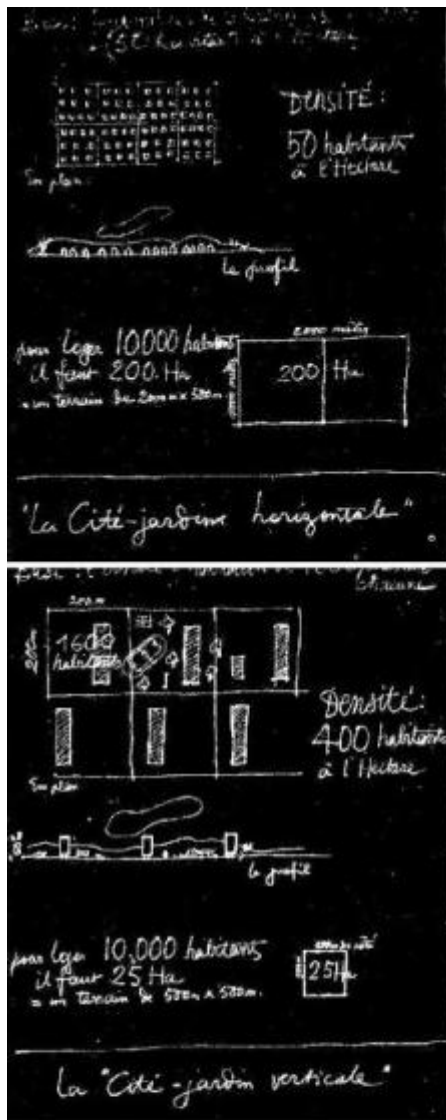 DENSITÉ:
50 habitants
à l'Hectare
En plan
le profil
2000 mètres
pour loger 10.000 habitants
il faut 200. Ha
= un terrain de
200 Ha
"La Cité-jardins horizontale"
200m
200m
1600
habitants
Densité:
400 habitants
à l'Hectare
En plan
le profil
pour loger 10.000 habitants
il faut 25 Ha
= un terrain de 500m x 500m.
25 Ha
La "Cité-jardin verticale"